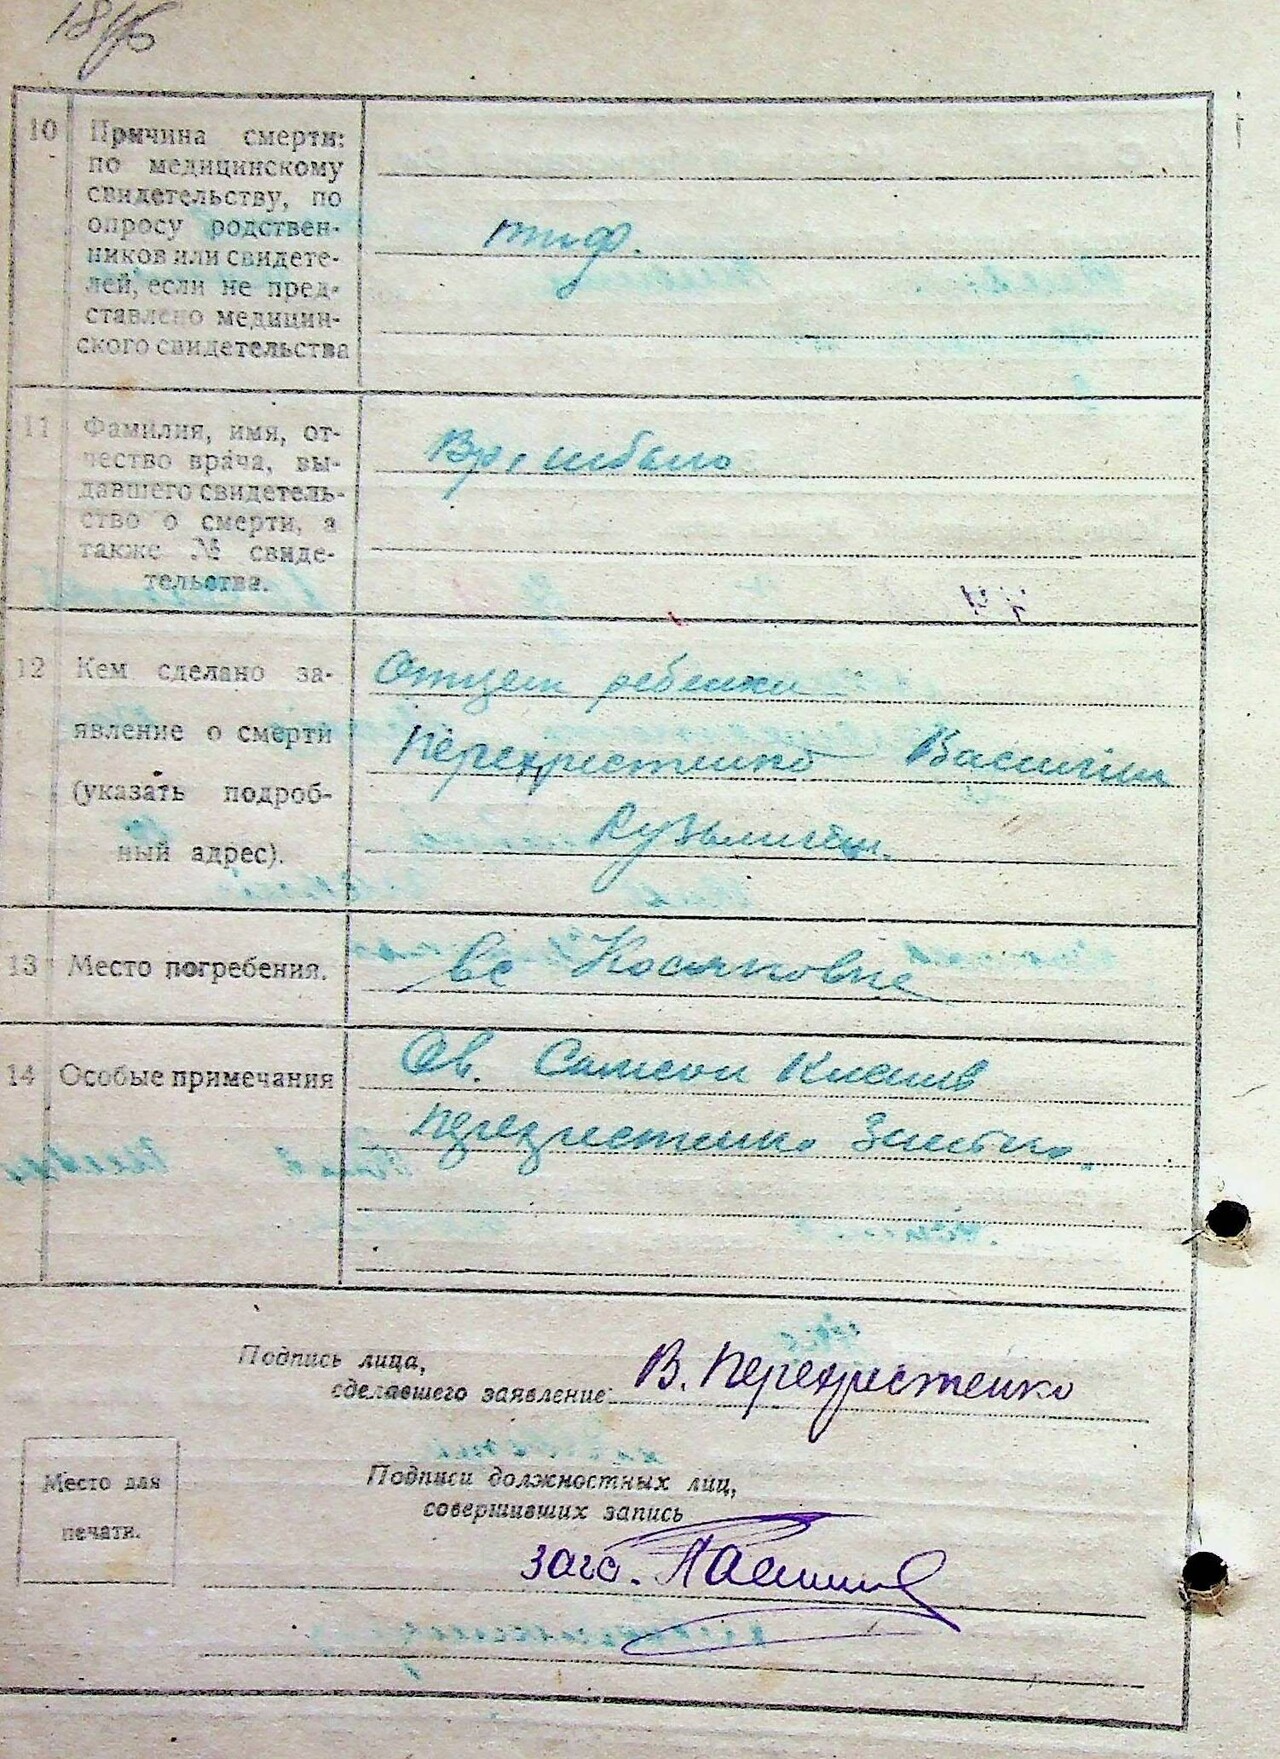 18/б
10 Причина смерти:
по медицинскому
свидетельству, по
опросу родствен-
ников или свидете-
лей, если не пред-
ставлено медицин-
ского свидетельства
тиф.
11 Фамилия, имя, от-
чество врача, вы-
давшего свидетель-
ство о смерти, а
также № свиде-
тельства.
Вр, не было
12 Кем сделано за-
явление о смерти
(указать подроб-
ный адрес).
Отцем ребенка
Перехрестенко Василием
Кузьмичем.
13 Место погребения.
в с Косяковке
14 Особые примечания
Св.
Перехрестенко
Подпись лица,
сделавшего заявление:
В. Перехрестенко
Место для
печати.
Подписи должностных лиц,
совершивших запись
загс.